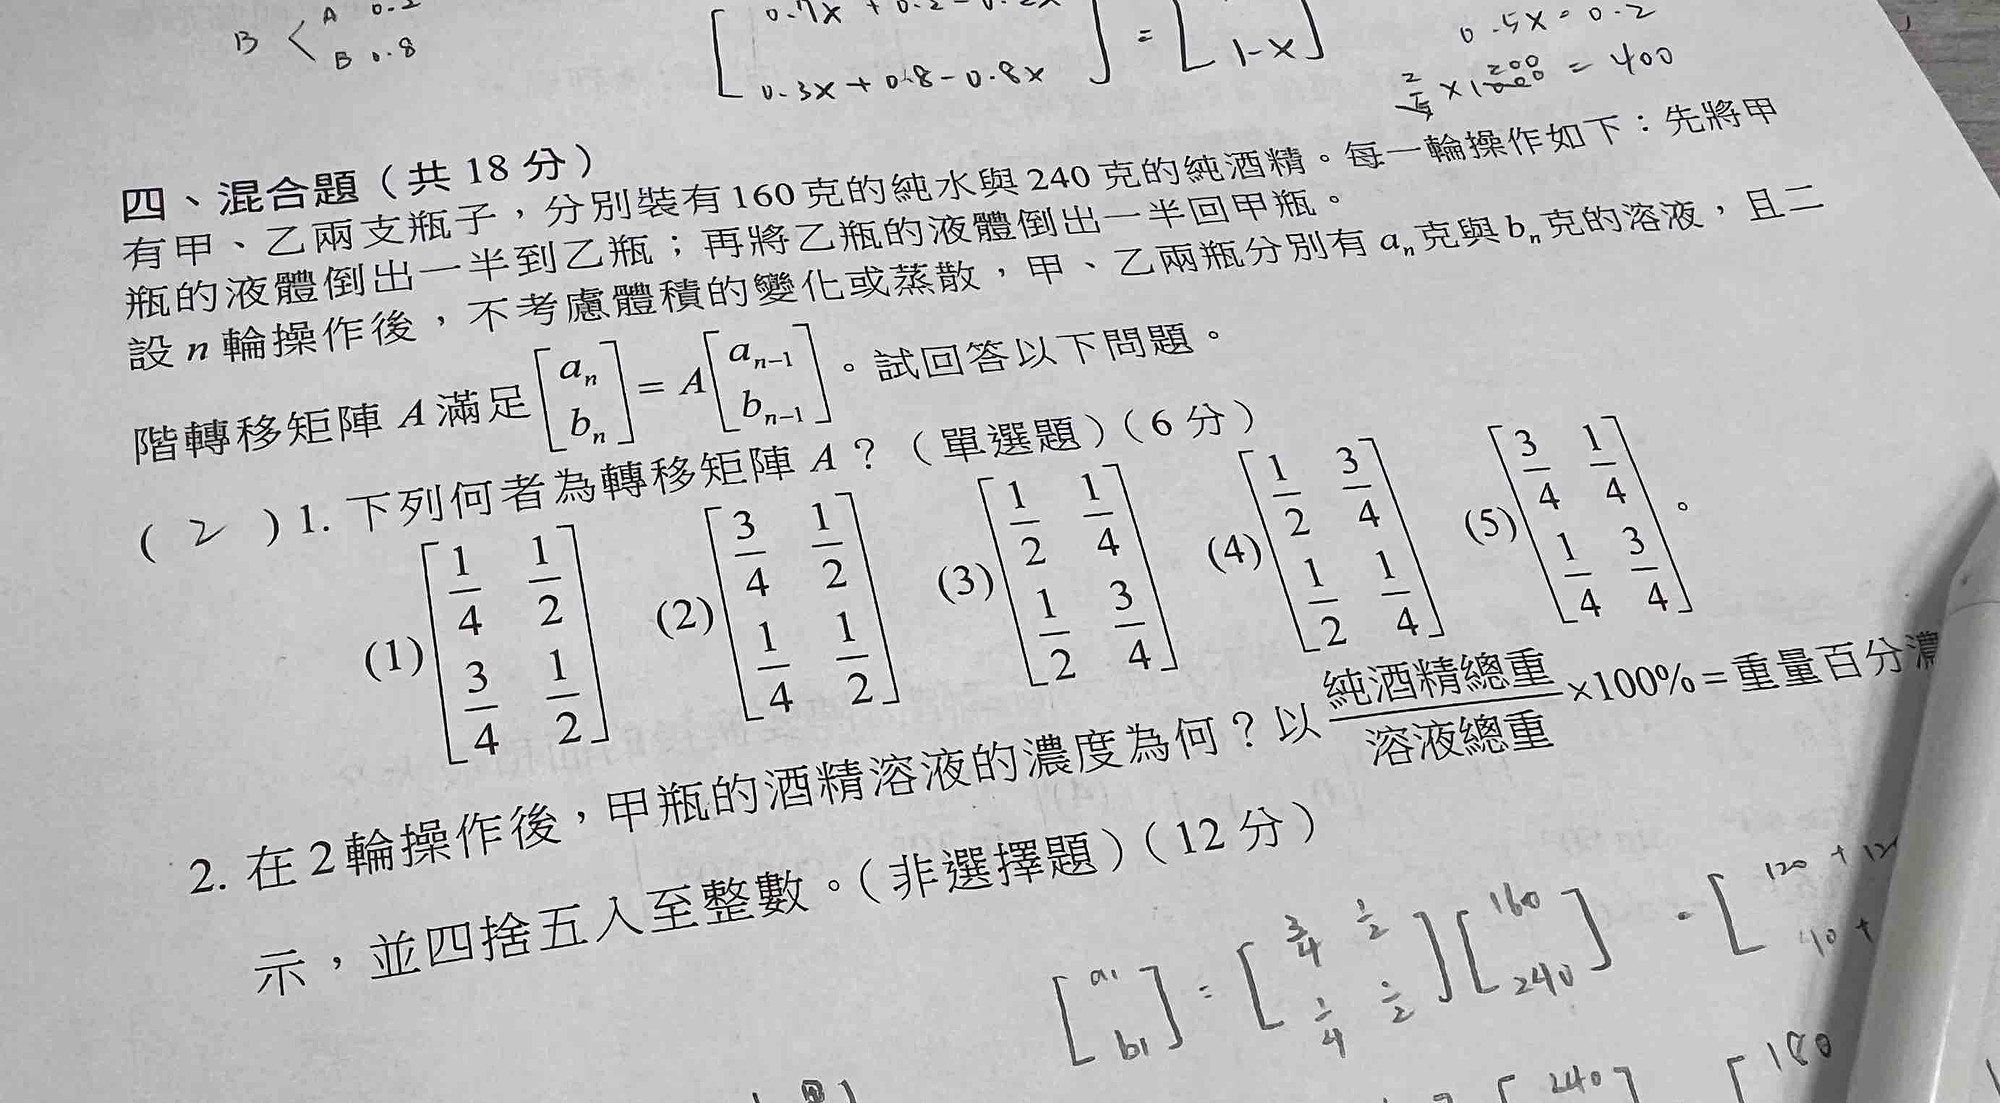 B < A 0.2
B 0.8
[ 0.7x + 0.2 - 0.2x
0.3x + 0.8 - 0.8x ] = [
1-x ]
0.5x = 0.2
2/5 × 1000 200 = 400
四、混合題（共 18 分）
有甲、乙兩支瓶子，分別裝有 160 克的純水與 240 克的純酒精。每一輪操作如下：先將甲
瓶的液體倒出一半到乙瓶；再將乙瓶的液體倒出一半回甲瓶。
設 n 輪操作後，不考慮體積的變化或蒸散，甲、乙兩瓶分別有 aₙ 克與 bₙ 克的溶液，且二
階轉移矩陣 A 滿足 [aₙ; bₙ] = A [aₙ₋₁; bₙ₋₁]。試回答以下問題。
( 2 ) 1. 下列何者為轉移矩陣 A？（單選題）（6 分）
(1) [1/4 1/2; 3/4 1/2] (2) [3/4 1/2; 1/4 1/2] (3) [1/2 1/4; 1/2 3/4] (4) [1/2 3/4; 1/2 1/4] (5) [3/4 1/4; 1/4 3/4]。
2. 在 2 輪操作後，甲瓶的酒精溶液的濃度為何？以 純酒精總重/溶液總重 ×100% = 重量百分濃
示，並四捨五入至整數。（非選擇題）（12 分）
[a1; b1] = [3/4 1/2; 1/4 1/2] [160; 240] = [120 + 12
40 +
240
180